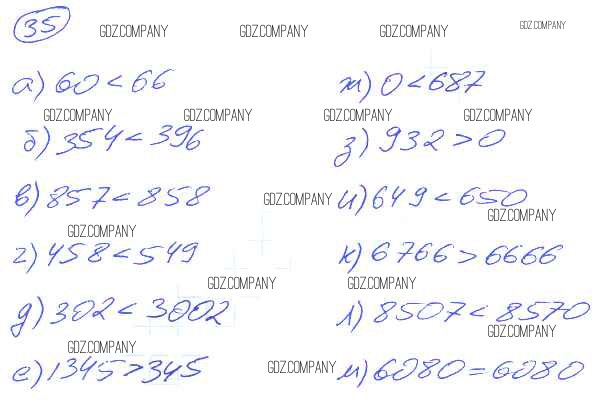 35
GDZ.COMPANY GDZ.COMPANY GDZ.COMPANY GDZ.COMPANY
а) 60 < 66
ж) 0 < 687
GDZ.COMPANY GDZ.COMPANY GDZ.COMPANY GDZ.COMPANY
б) 354 < 396
з) 932 > 0
в) 857 < 858
GDZ.COMPANY
и) 649 < 650
GDZ.COMPANY
GDZ.COMPANY
г) 458 < 549
к) 6766 > 6666
GDZ.COMPANY GDZ.COMPANY
д) 302 < 3002
л) 8507 < 8570
GDZ.COMPANY
GDZ.COMPANY
е) 1345 > 345
GDZ.COMPANY
м) 6080 = 6080